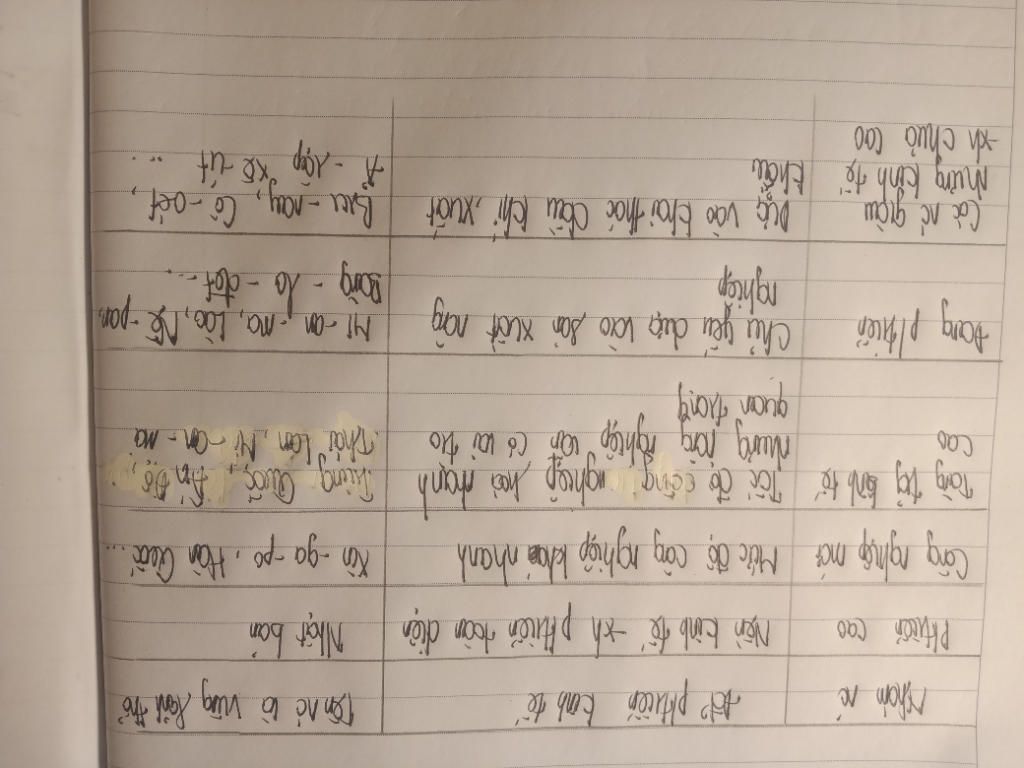 Nhóm nc
đđ² phtriển kinh tế
Tên nc và vùng lãnh thổ
Phtriển cao
Nền kinh tế -xh phtriển toàn diện
Nhật bản
Công nghiệp mới
Mức độ công nghiệp khá nhanh
Xin -ga -po, Hàn Quốc ...
Tăng trg kinh tế
cao
Tốc độ công nghiệp hoá nhanh
nhưng nông nghiệp vẫn có vai trò
quan trọng
Trung Quốc, Ấn Độ,
Thái Lan, Mi -an -ma
Đang phtriển
Chủ yếu dựa vào sản xuất nông
nghiệp
Mi -an -ma, Lào, Nê -pan,
Băng -la -đét...
Các nc giàu
nhưng kinh tế
-xh chưa cao
Dựa vào khai thác dầu khí, xuất
khẩu
Bru -nay, Cô -oét,
Ả -rập Xê -út ...